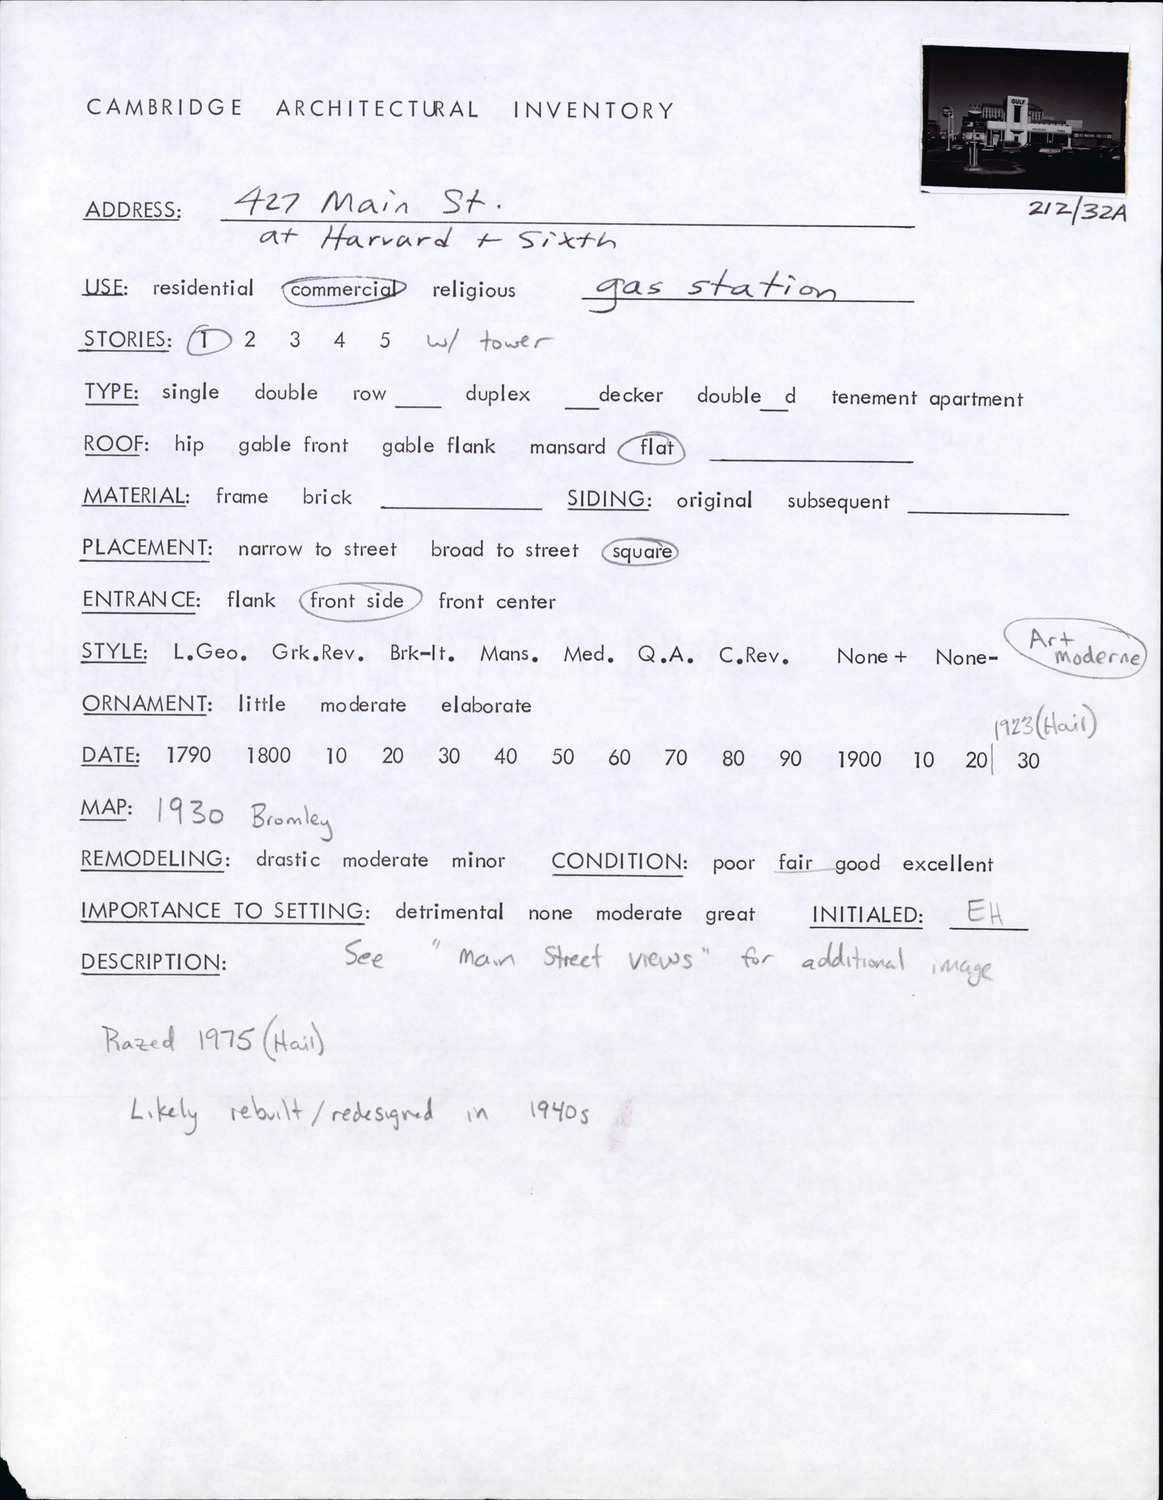 GULF
CAMBRIDGE ARCHITECTURAL INVENTORY
212/32A
ADDRESS: 427 Main St.
at Harvard + Sixth
USE: residential commercial religious gas station
STORIES: 1 2 3 4 5 w/ tower
TYPE: single double row ___ duplex ___decker double__d tenement apartment
ROOF: hip gable front gable flank mansard flat
MATERIAL: frame brick SIDING: original subsequent
PLACEMENT: narrow to street broad to street square
ENTRANCE: flank front side front center
STYLE: L.Geo. Grk.Rev. Brk-It. Mans. Med. Q.A. C.Rev. None + None- Art
moderne
ORNAMENT: little moderate elaborate
1923 (Hail)
DATE: 1790 1800 10 20 30 40 50 60 70 80 90 1900 10 20 30
MAP: 1930 Bromley
REMODELING: drastic moderate minor CONDITION: poor fair good excellent
IMPORTANCE TO SETTING: detrimental none moderate great INITIALED: EH
DESCRIPTION: See "Main Street views" for additional image
Razed 1975 (Hail)
Likely rebuilt/redesigned in 1940s